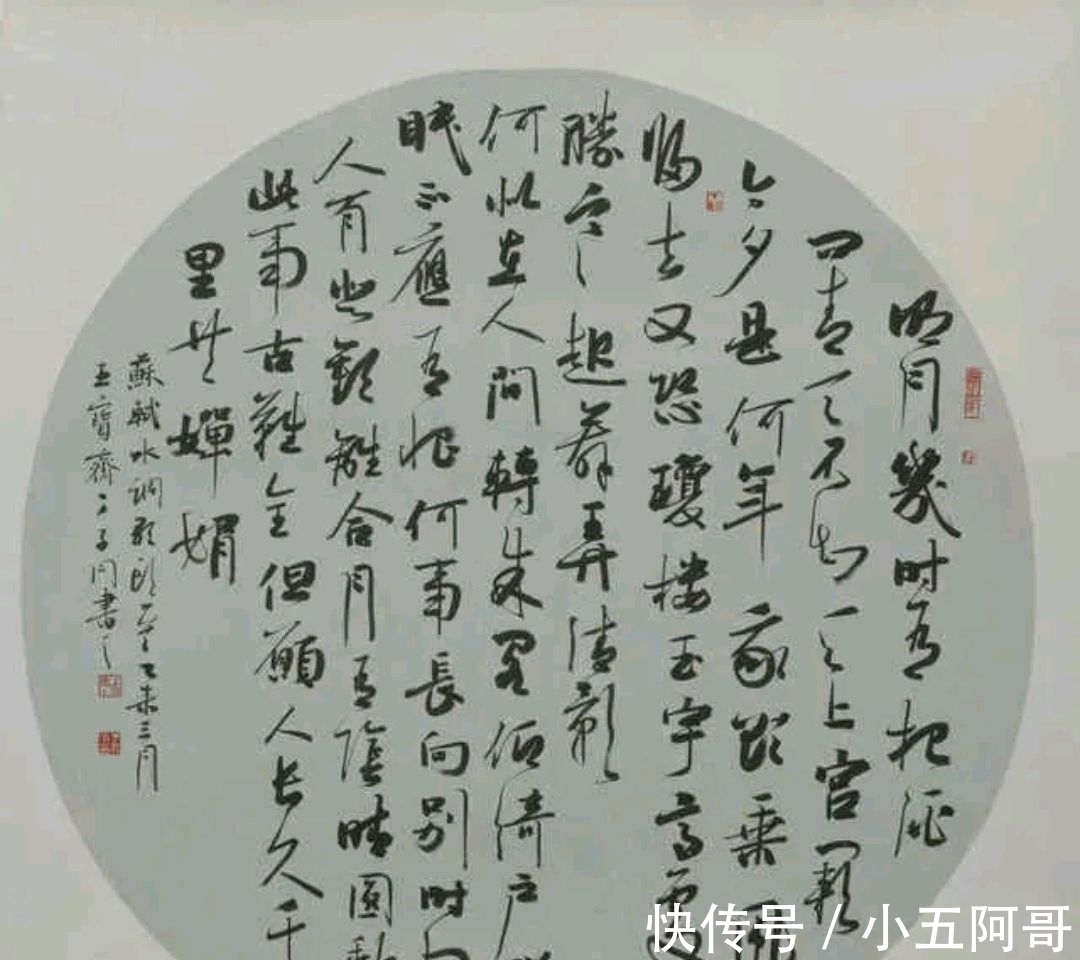 明月幾时有把酒
问青天不知天上宫阙
今夕是何年我欲乘風
归去又恐瓊楼玉宇高處
勝寒起舞弄清影
何似在人間轉朱阁低绮户
眠不應有恨何事長向别时
人有悲歡離合月有陰晴圓
此事古難全但願人长久千
里共嬋娟
蘇軾水調歌頭乙未三月
王寶齋書之
快传号 / 小五阿哥